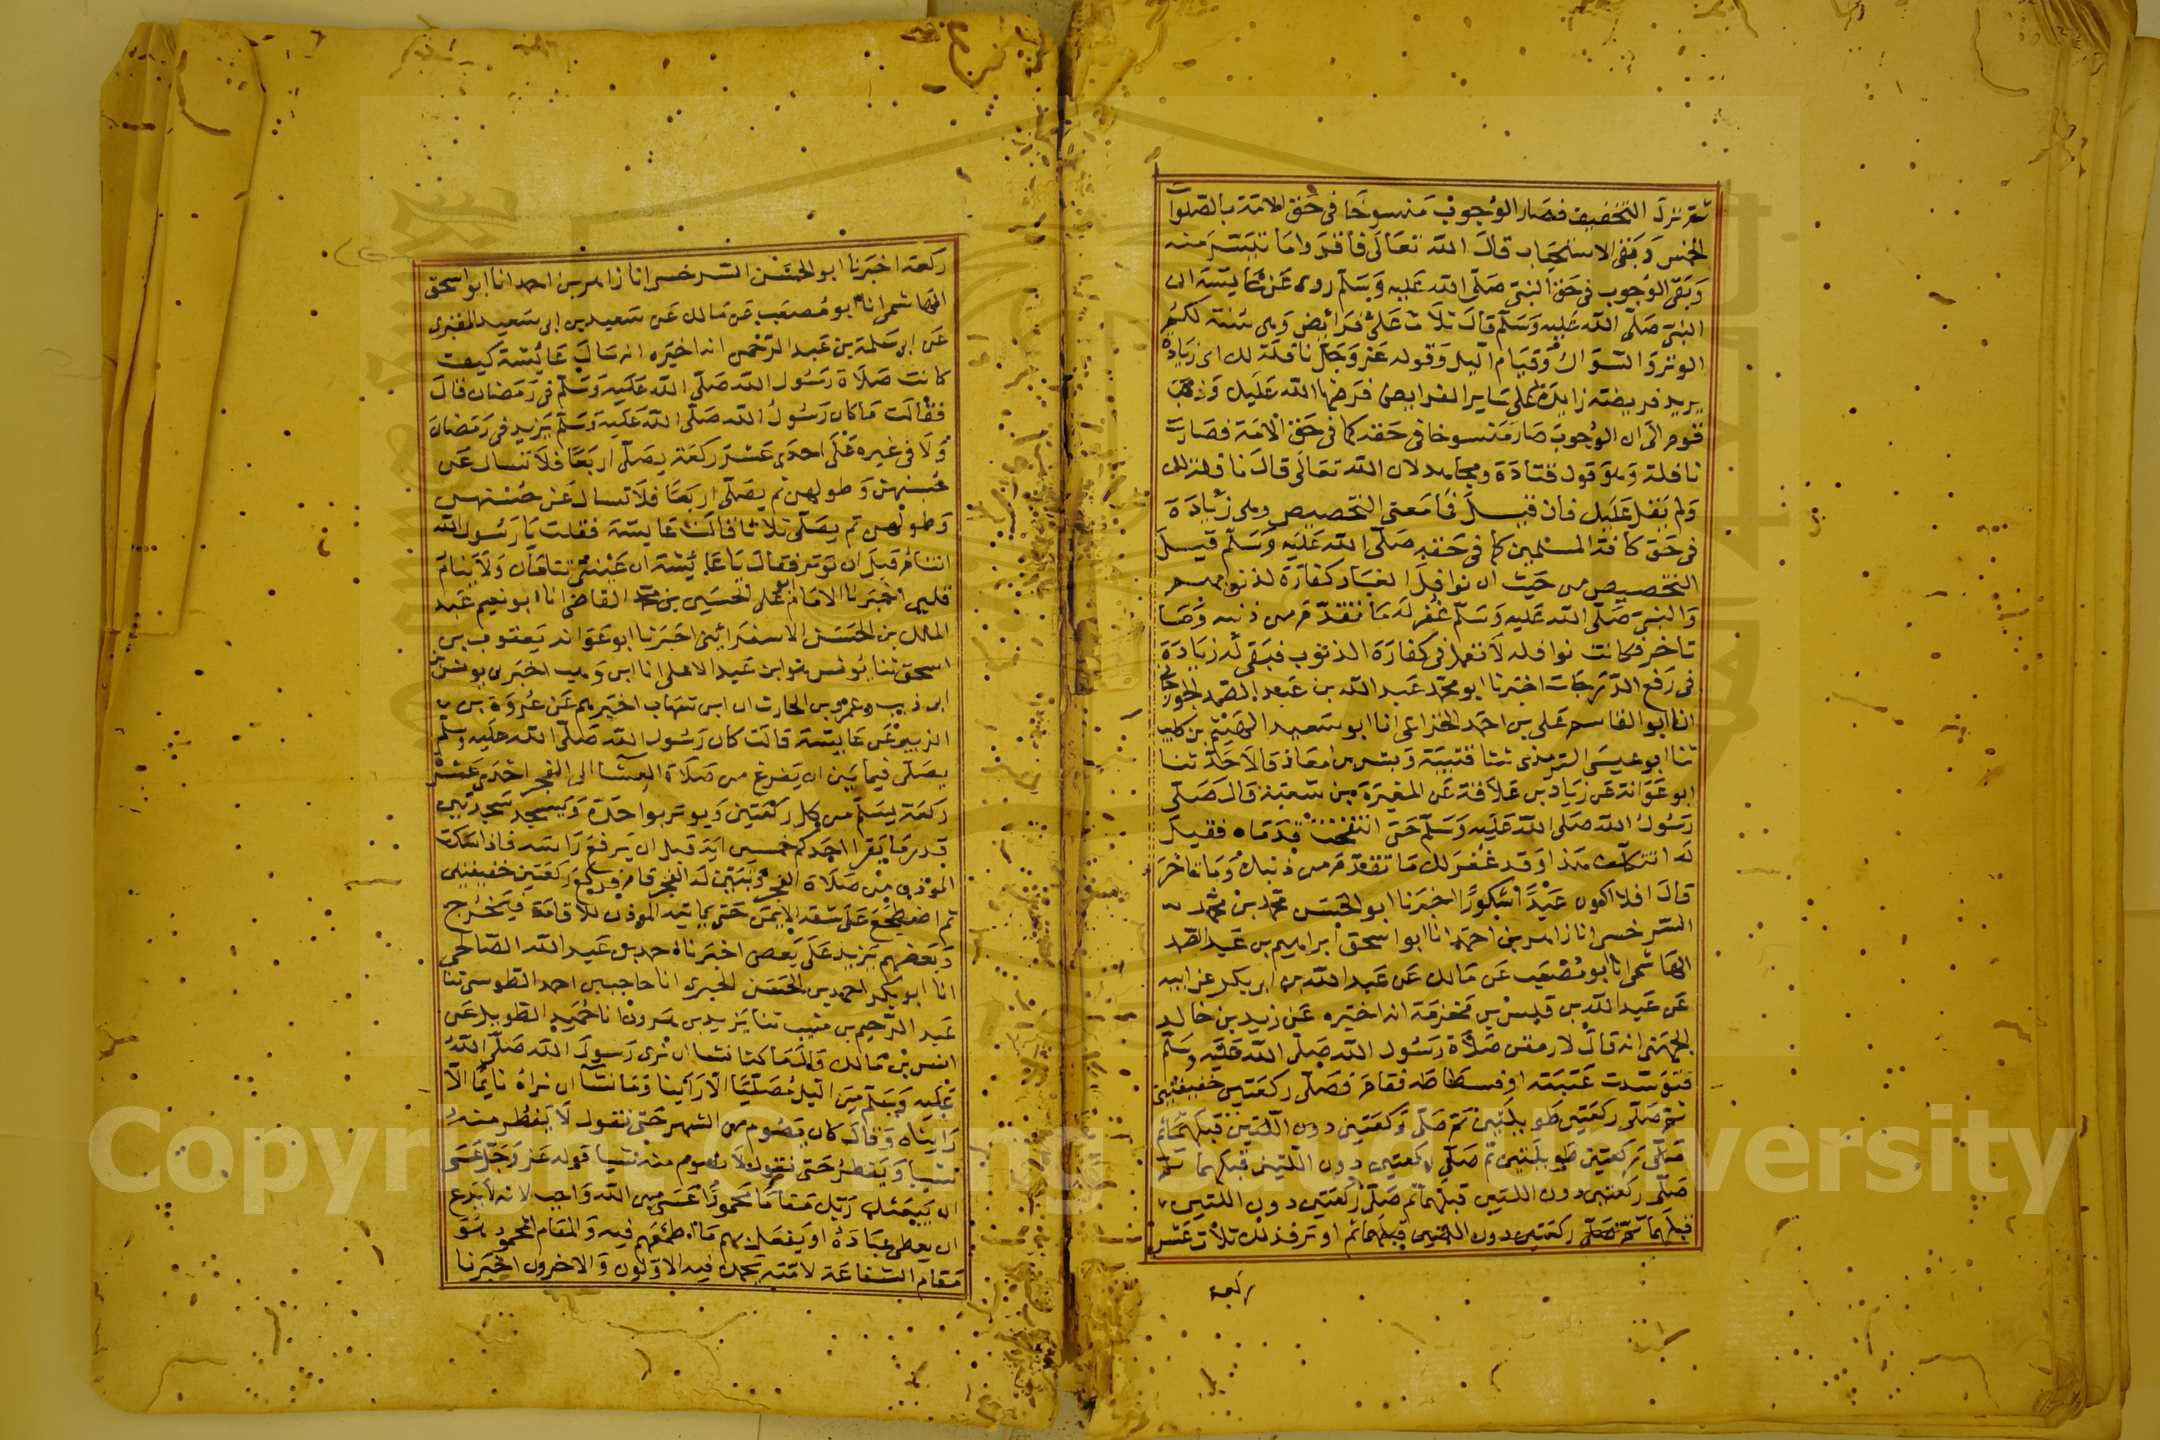 ثم نزل التخفيف فصار الوجوب منسوخا في حق الامة بالصلوات
الخمس وبقى الاستحباب قال الله تعالى فاقرؤا ما تيسر منه
وبقى الوجوب في حق النبي صلى الله عليه وسلم روى عن عايشة ان
النبي صلى الله عليه وسلم قال ثلاث علي فرائض وهى سنة لكم
الوتر والسواك وقيام الليل وقوله عز وجل نافلة لك اى زيادة
يريد فريضة زايدة على ساير الفرايض فرضها الله عليك وذهب
قوم الى ان الوجوب صار منسوخا في حقه كما في حق الامة فصارت
نافلة وهو قول قتادة ومجاهد لان الله تعالى قال نافلة لك
ولم يقل عليك فان قيل فما معنى التخصيص وهى زيادة
في حق كافة المسلمين كما في حقه صلى الله عليه وسلم قيل
التخصيص من حيث ان نوافل العباد كفارة لذنوبهم
والنبى صلى الله عليه وسلم غفر له ما تقدم من ذنبه وما
تاخر فكانت نوافله لا تعمل في كفارة الذنوب فبقى له زيادة
في رفع الدرجات اخبرنا ابو محمد عبد الله بن عبد الصمد الجوزجاني
انا ابو القاسم على بن احمد الخزاعى انا ابو سعيد الهيثم بن كليب
ثنا ابو عيسى الترمذى ثنا قتيبة وبشر بن معاذ قالا حدثنا
ابو عوانة عن زياد بن علاقة عن المغيرة بن شعبة قال صلى
رسول الله صلى الله عليه وسلم حتى انتفخت قدماه فقيل
له اتتكلف هذا وقد غفر لك ما تقدم من ذنبك وما تاخر
قال افلا اكون عبدا شكورا اخبرنا ابو الحسن محمد بن محمد
السرخسى انا زاهر بن احمد انا ابو اسحق ابراهيم بن عبد الصمد
الهاشمى انا ابو مصعب عن مالك عن عبد الله بن ابى بكر عن ابيه
عن عبد الله بن قيس بن مخرمة انه اخبره عن زيد بن خالد
الجهنى انه قال لارمقن صلاة رسول الله صلى الله عليه وسلم
فتوسدت عتبته او فسطاطه فقام فصلى ركعتين خفيفتين
ثم صلى ركعتين طويلتين ثم صلى ركعتين دون اللتين قبلهما ثم
صلى ركعتين طويلتين ثم صلى ركعتين دون اللتين قبلهما ثم
صلى ركعتين دون اللتين قبلهما ثم صلى ركعتين دون اللتين
قبلهما ثم صلى ركعتين دون اللتين قبلهما ثم اوتر فذلك ثلاث عشر
ركعة
ركعة اخبرنا ابو الحسن السرخسى انا زاهر بن احمد انا ابو اسحق
الهاشمى انا ابو مصعب عن مالك عن سعيد بن ابى سعيد المقبرى
عن ابى سلمة بن عبد الرحمن انه اخبره انه سال عائشة كيف
كانت صلاة رسول الله صلى الله عليه وسلم في رمضان قال
فقالت ما كان رسول الله صلى الله عليه وسلم يزيد في رمضان
ولا في غيره على احدى عشر ركعة يصلى اربعا فلا تسال عن
حسنهن وطولهن ثم يصلى اربعا فلا تسال عن حسنهن
وطولهن ثم يصلى ثلاثا قالت عايشة فقلت يا رسول الله
اتنام قبل ان توتر فقال يا عائشة ان عينى تنامان ولا ينام
قلبى اخبرنا الامام ابو على الحسين بن محمد القاضى انا ابو نعيم عبد
الملك بن الحسن الاسفرائينى اخبرنا ابو عوانة يعقوب بن
اسحق ثنا يونس بن عبد الاعلى انا ابن وهب اخبرنى يونس و
ابن ذيب وعمرو بن الحارث ان ابن شهاب اخبرهم عن عروة بن
الزبير عن عايشة قالت كان رسول الله صلى الله عليه وسلم
يصلى فيما بين ان يفرغ من صلاة العشا الى الفجر احدى عشر
ركعة يسلم من كل ركعتين ويوتر بواحدة ويسجد سجدتين
قدر ما يقرا احدكم خمسين اية قبل ان يرفع راسه فاذا سكت
الموذن من صلاة الفجر وتبين له الفجر قام فركع ركعتين خفيفتين
ثم اضطجع على شقه الايمن حتى ياتيه الموذن للاقامة فيخرج
وبعضهم يزيد على بعض اخبرنا احمد بن عبد الله الصالحى
انا ابو بكر احمد بن الحسن الحيرى انا حاجب بن احمد الطوسى ثنا
عبد الرحيم بن منيب ثنا يزيد بن هرون انا حميد الطويل عن
انس بن مالك قال ما كنا نشا ان نرى رسول الله صلى الله
عليه وسلم من الليل مصليا الا راينا وما نشا ان نراه نائما الا
رايناه وقال كان يصوم من الشهر حتى نقول لا يفطر منه
شيا ويفطر حتى نقول لا يصوم منه شيا قوله عز وجل عسى
ان يبعثك ربك مقاما محمودا عسى من الله واجب لانه لا يدع
ان يعطى عباده او يفعل بهم ما اطمعهم فيه والمقام المحمود هو
مقام الشفاعة لامته يحمده فيه الاولون والاخرون اخبرنا
Copyright © King Saud University